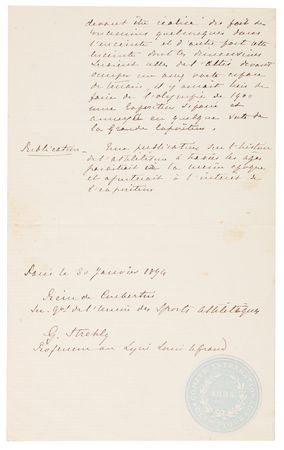 devant être réalisé du fait de
concessions quelconques dans
l'enceinte et d'autre part cette
enceinte dont les dimensions
devant
occuper un assez vaste espace
de terrain il y aurait lieu de
faire de l'olympie de 1900
une Exposition séparée et
annexée en quelque sorte de
la Grande Exposition.
Publication - Une publication sur l'histoire
de l'athlétisme à travers les âges
paraîtrait à la même époque
et ajouterait à l'intérêt de
l'exposition
Paris le 30 Janvier 1894
Pierre de Coubertin
Sec. Gal de l'Union des Sports Athlétiques
G. Strehly
Professeur au Lycée Louis le Grand
1894